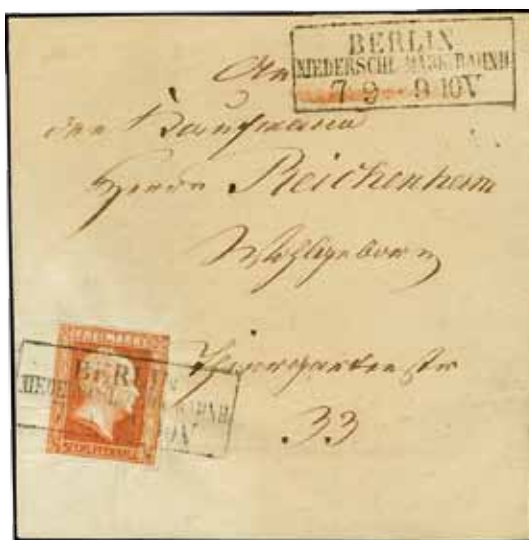 BERLIN
NIEDERSCHL. MARK. BAHNH.
7 9 9-10V
An
den Kaufmann
Herrn Reichenheim
Wohlgeborn
Thiergarten Str
33
FREIMARKE
BERLIN